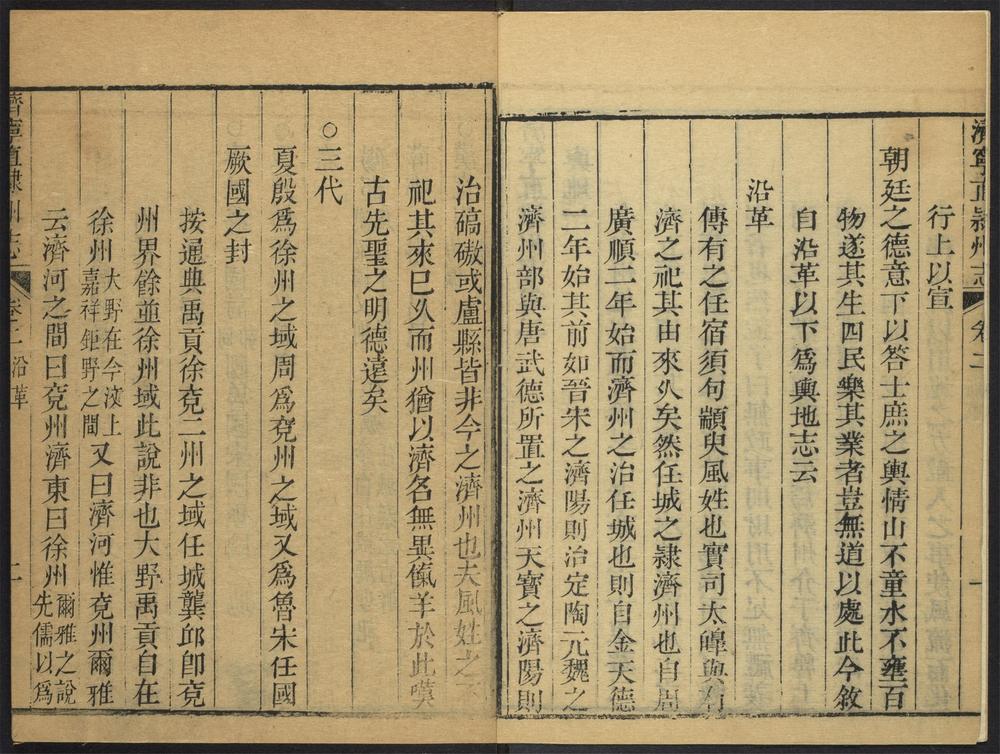 濟寧直隷州志 卷二 一
行上以宣
朝廷之德意下以答士庶之輿情山不童水不壅百
物遂其生四民樂其業者豈無道以處此今敘
自沿革以下爲輿地志云
沿革
傳有之任宿須句顓臾風姓也實司太皥與有
濟之祀其由來久矣然任城之隷濟州也自周
廣順二年始而濟州之治任城也則自金天德
二年始其前如晉宋之濟陽則治定陶元魏之
濟州部與唐武德所置之濟州天寶之濟陽則
治碻磝或盧縣皆非今之濟州也夫風姓之
祀其來已久而州猶以濟名無異餼羊於此嘆
古先聖之明德遠矣
○三代
夏殷爲徐州之域周爲兗州之域又爲魯宋任國
厥國之封
按通典禹貢徐兗二州之域任城龔邱卽兗
州界餘並徐州域此說非也大野禹貢自在
徐州大野在今汶上嘉祥鉅野之間又曰濟河惟兗州爾雅
云濟河之間曰兗州濟東曰徐州爾雅之說先儒以爲
濟寧直隷州志 卷二 沿革 二